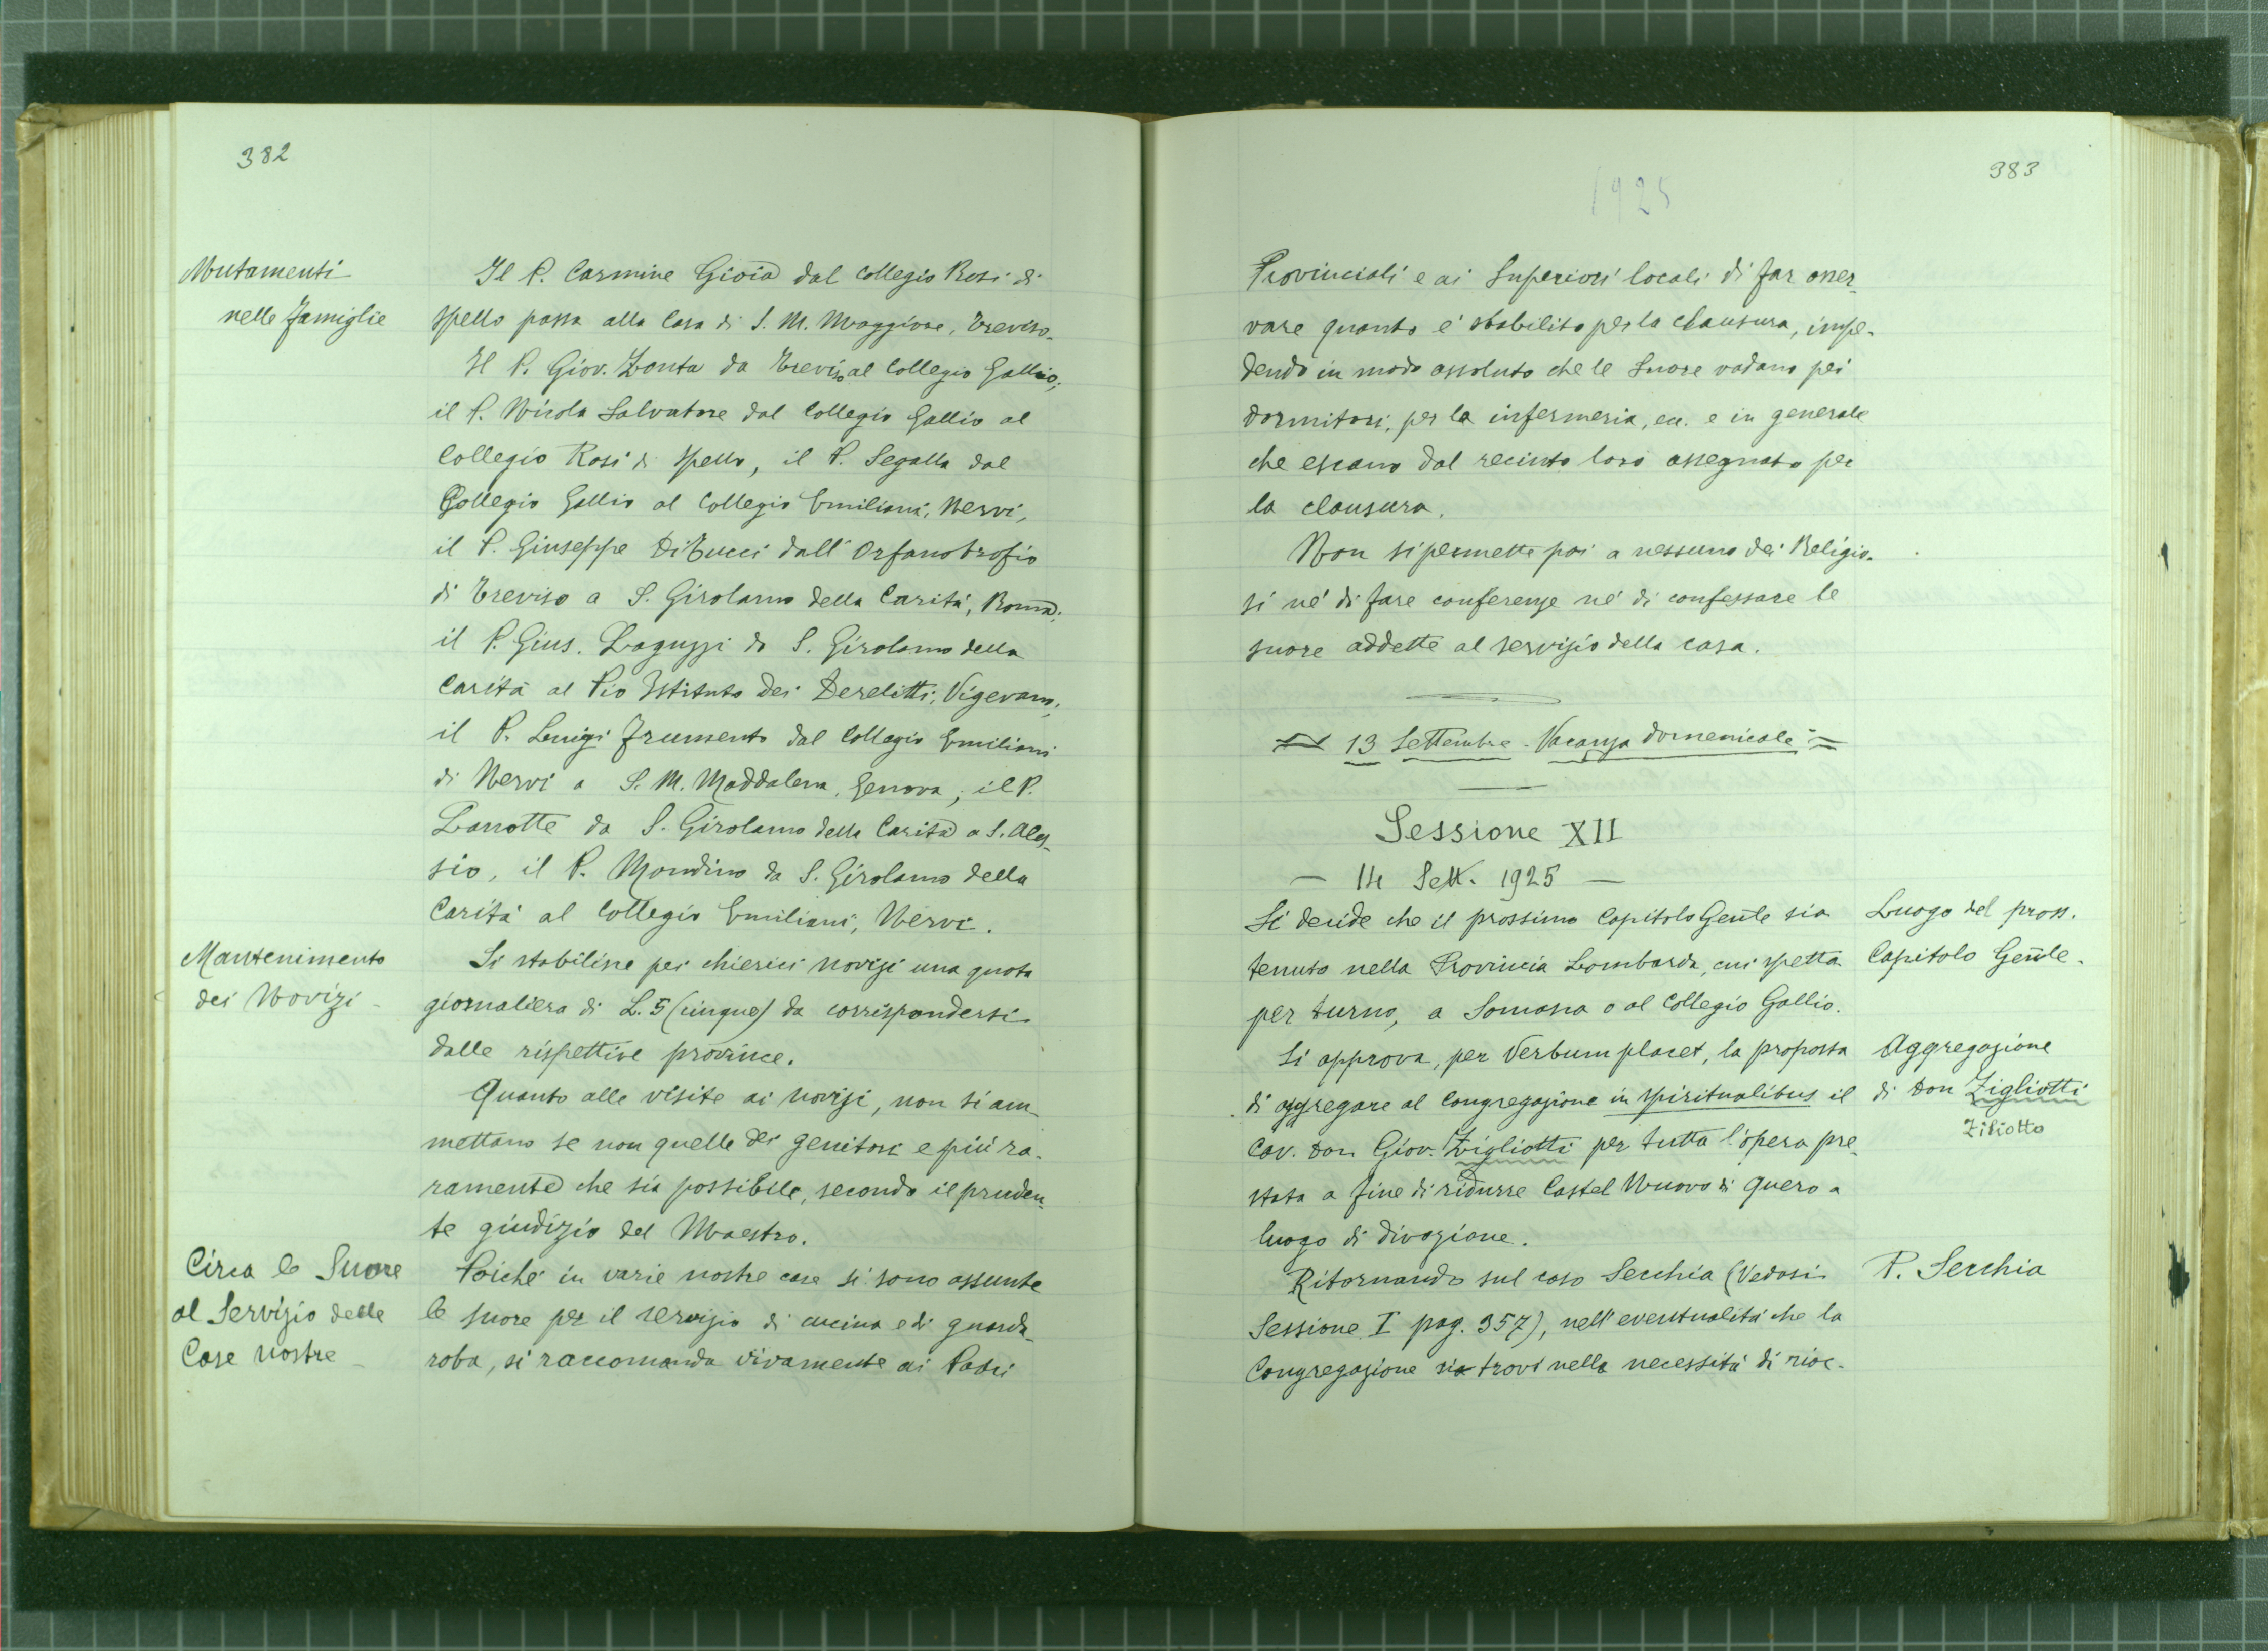 382
Mutamenti
nelle famiglie
Il P. Carmine Gioia dal collegio Rosi di
Spello passa alla Casa di S. M. Maggiore, Treviso.
Il P. Giov. Zonta da Treviso al Collegio Gallio;
il P. Nicola Salvatore dal Collegio Gallio al
Collegio Rosi di Spello, il P. Segalla dal
Collegio Gallio al Collegio Emiliani, Nervi,
il P. Giuseppe Di Tucci dall' Orfanotrofio
di Treviso a S. Girolamo della Carità, Roma;
il P. Gius. Laguzzi da S. Girolamo della
Carità al Pio Istituto dei Derelitti, Vigevano;
il P. Luigi Frumento dal Collegio Emiliani
di Nervi a S. M. Maddalena, Genova; il P.
Lanotte da S. Girolamo della Carità a S. Ales-
sio, il P. Mondino da S. Girolamo della
Carità al Collegio Emiliani, Nervi.
Mantenimento
dei Novizi -
Si stabilisce pei chierici novizi una quota
giornaliera di L. 5 (cinque) da corrispondersi
dalle rispettive province.
Quanto alle visite ai novizi, non si am-
mettano se non quelle dei genitori e più ra-
ramente che sia possibile, secondo il pruden-
te giudizio del Maestro.
Circa le Suore
al Servizio delle
Case nostre -
Poiché in varie nostre case si sono assunte
le suore per il servizio di cucina e di guarda-
roba, si raccomanda vivamente ai Padri
383
1925
Provinciali e ai Superiori locali di far osser-
vare quanto è stabilito per la clausura, impe-
dendo in modo assoluto che le Suore vadano pei
dormitori, per la infermeria, ecc. e in generale
che escano dal recinto loro assegnato per
la clausura.
Non si permette poi a nessuno dei Religio-
si né di fare conferenze né di confessare le
suore addette al servizio della casa.
= 13 Settembre - Vacanza domenicale =
Sessione XII
- 14 Sett. 1925 -
Si decide che il prossimo Capitolo Gen̄le sia
tenuto nella Provincia Lombarda, cui spetta
per turno, a Somasca o al Collegio Gallio.
Luogo del pross.
Capitolo Gen̄le.
Si approva, per Verbum placet, la proposta
di aggregare al Congregazione in spiritualibus il
Cav. Don Giov. Zigliotti per tutta l'opera pre-
stata a fine di ridurre Castel Nuovo di Quero a
luogo di divozione.
Aggregazione
di Don Zigliotti
Ziliotto
Ritornando sul caso Secchia (Vedasi
Sessione I pag. 357), nell'eventualità che la
Congregazione sia trovi nella necessità di riac-
P. Secchia